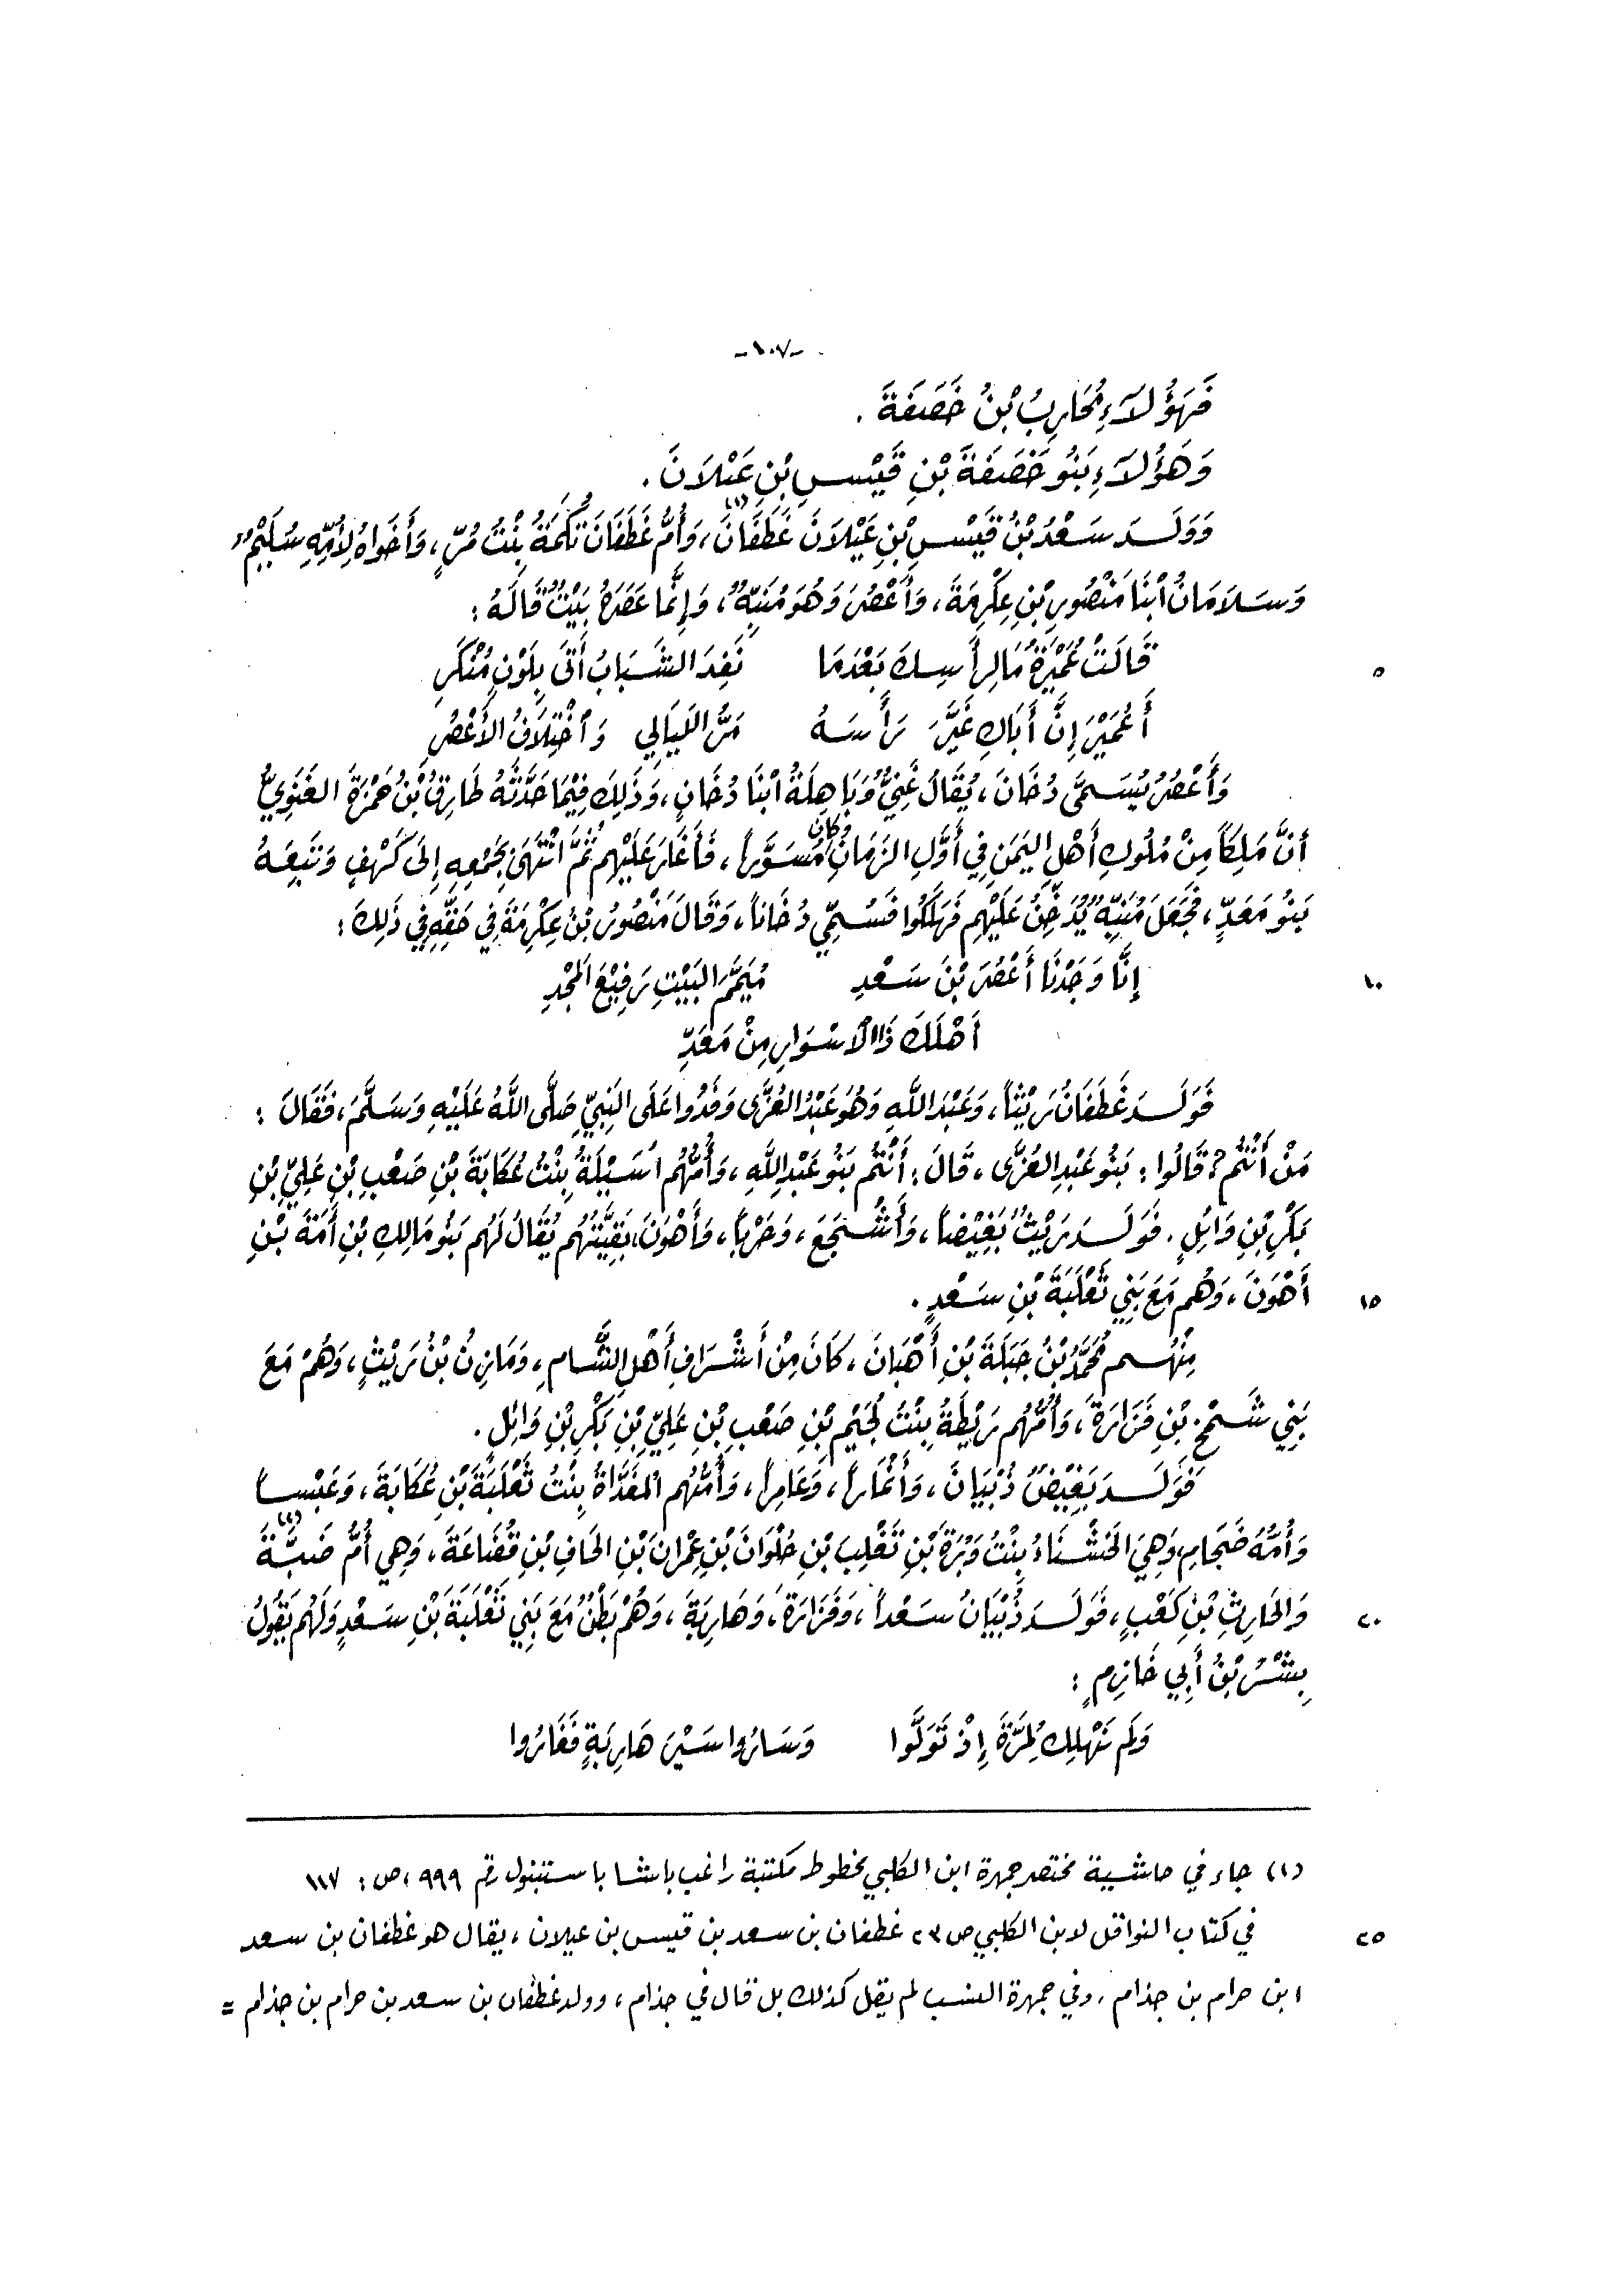 -١٠٧-
فَهَؤُلَاءِ مُحَارِبُ بْنُ خَصَفَةَ .
وَهَؤُلَاءِ بَنُو خَصَفَةَ بْنِ قَيْسِ بْنِ عَيْلَانَ .
وَوَلَدَ سَعْدُ بْنُ قَيْسِ بْنِ عَيْلَانَ غَطَفَانَ(١)، وَأُمُّ غَطَفَانَ تُكْمَةُ بِنْتُ مُرٍّ، وَأَخَوَاهُ لِأُمِّهِ سُلَيْمٌ
وَسَلَامَانُ ابْنَا مَنْصُورِ بْنِ عِكْرِمَةَ، وَأَعْصُرَ وَهُوَ مُنَبِّهٌ، وَإِنَّمَا عَصَرَهُ بَيْتٌ قَالَهُ :
قَالَتْ عُمَيْرَةُ مَا لِرَأْسِكَ بَعْدَمَا نَفِدَ الشَّبَابُ أَتَى بِلَوْنٍ مُنْكَرِ ٥
أَعُمَيْرَ إِنَّ أَبَاكِ غَيَّرَ رَأْسَهُ مَرُّ اللَّيَالِي وَاخْتِلَافُ الأَعْصُرِ
وَأَعْصُرُ يُسَمَّى دُخَانَ، يُقَالُ غَنِيٌّ وَبَاهِلَةُ ابْنَا دُخَانٍ، وَذَلِكَ فِيْمَا حَدَّثَهُ طَارِقُ بْنُ حَمْزَةَ الغَنَوِيُّ
أَنَّ مَلِكاً مِنْ مُلُوكِ أَهْلِ اليَمَنِ فِي أَوَّلِ الزَمَانِ وكان مُسَوَّراً، فَأَغَارَ عَلَيْهِم ثُمَّ انْتَهَى بِجَمْعِهِ إِلَى كَهْفٍ وَتَبِعَهُ
بَنُو مَعَدٍّ، فَجَعَلَ مُنَبِّهٌ يُدَخِّنُ عَلَيْهِم فَهَلَكُوا فَسُمِّيَ دُخَاناً، وَقَالَ مَنْصُورُ بْنُ عِكْرِمَةَ فِي حَقِّهِ فِي ذَلِكَ :
إِنَّا وَجَدْنَا أَعْصُرَ بْنَ سَعْدِ مُيَمَّمَ البَيْتِ رَفِيْعَ المَجْدِ ١٠
أَهْلَكَ ذَا الاسْوَارِ مِنْ مَعَدِّ
فَوَلَدَ غَطَفَانُ رَيْثاً، وَعَبْدَ اللَّهِ وَهُوَ عَبْدُ العُزَّى وَفَدُوا عَلَى النَبِيِّ صَلَّى اللَّهُ عَلَيْهِ وَسَلَّمَ، فَقَالَ :
مَنْ أَنْتُم ؟ قَالُوا : بَنُو عَبْدِ العُزَّى، قَالَ : أَنْتُم بَنُو عَبْدِ اللَّهِ، وَأُمُّهُم أَسَيْلَةُ بِنْتُ عُكَابَةَ بْنِ صَعْبِ بْنِ عَلِيِّ بْنِ
بَكْرِ بْنِ وَائِلٍ. فَوَلَدَ رَيْثٌ بَغِيْضاً، وَأَشْجَعَ، وَحَرْباً، وَأَهْوَنَ، بَقِيَّتُهُم يُقَالُ لَهُم بَنُو مَالِكِ بْنِ أَمَةَ بْنِ
أَهْوَنَ، وَهُم مَعَ بَنِي ثَعْلَبَةَ بْنِ سَعْدٍ . ١٥
مِنْهُم مُحَمَّدُ بْنُ جَبَلَةَ بْنِ أُهْبَانَ، كَانَ مِنْ أَشْرَافِ أَهْلِ الشَّامِ، وَمَازِنُ بْنُ رَيْثٍ، وَهُمْ مَعَ
بَنِي شَمْخِ بْنِ فَزَارَةَ، وَأُمُّهُم رَيْطَةُ بِنْتُ لُجَيْمِ بْنِ صَعْبِ بْنِ عَلِيِّ بْنِ بَكْرِ بْنِ وَائِلٍ .
فَوَلَدَ بَغِيْضٌ ذُبْيَانَ، وَأَنْمَاراً، وَعَامِراً، وَأُمُّهُم المُفَدَّاةُ بِنْتُ ثَعْلَبَةَ بْنِ عُكَابَةَ، وَعَبْساً
وَأُمُّهُ ضَجَامِ وَهِيَ الخَشْنَاءُ بِنْتُ وَبْرَةَ بْنِ تَغْلِبَ بْنِ حُلْوَانَ بْنِ عِمْرَانَ بْنِ الحَافِ بْنِ قُضَاعَةَ، وَهِي أُمُّ ضَبَّةَ(٢)
وَالحَارِثِ بْنِ كَعْبٍ، فَوَلَدَ ذُبْيَانُ سَعْداً، وَفَزَارَةَ، وَهَارِبَةَ، وَهُمْ بَطْنٌ مَعَ بَنِي ثَعْلَبَةَ بْنِ سَعْدٍ وَلَهُم يَقُولُ ٢٠
بِشْرُ بْنُ أَبِي خَازِمٍ :
وَلَم نَهْلِك لِمُرَّةَ إِذْ تَوَلَّوا وَسَارُوا سَيْرَ هَارِبَةٍ فَغَارُوا
(١) جاء في حاشية مختصر جمهرة ابن الكلبي مخطوط مكتبة راغب باشا باستنبول رقم ٩٩٩ ، ص : ١١٧
في كتاب النواقل لابن الكلبي ص ٢٣ غطفان بن سعد بن قيس بن عيلان، يقال هو غطفان بن سعد ٢٥
ابن حرام بن جذام . وفي جمهرة النسب لم يقل كذلك بل قال في جذام، وولد غطفان بن سعد بن حرام بن جذام =